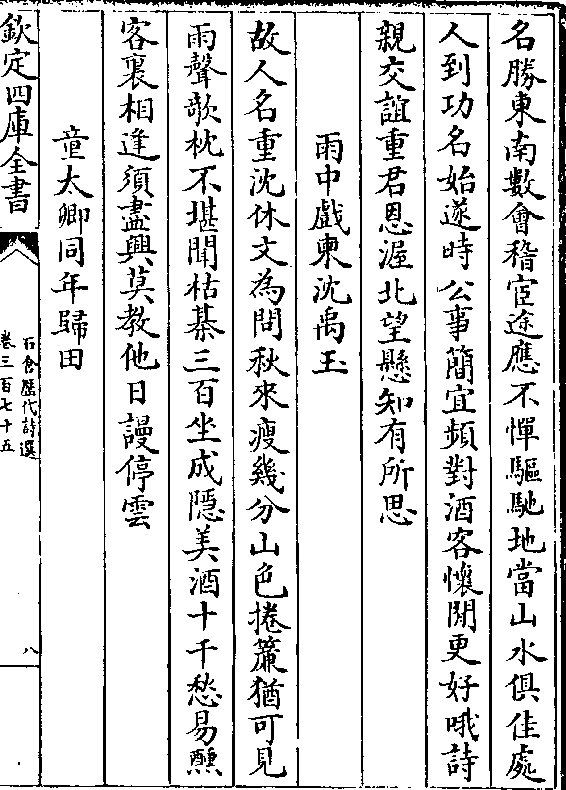 名勝東南數會稽宦途應不憚驅馳地當山水俱佳處
人到功名始遂時公事簡宜頻對酒客懷閒更好哦詩
親交誼重君恩渥北望懸知有所思
雨中戲柬沈禹玉
故人名重沈休文為問秋來瘦幾分山色捲簾猶可見
雨聲欹枕不堪聞枯棊三百坐成隠美酒十千愁易醺
客裏相逢須盡興莫教他日謾停雲
童太卿同年歸田
欽定四庫全書
石倉歴代詩選
卷三百七十五
八